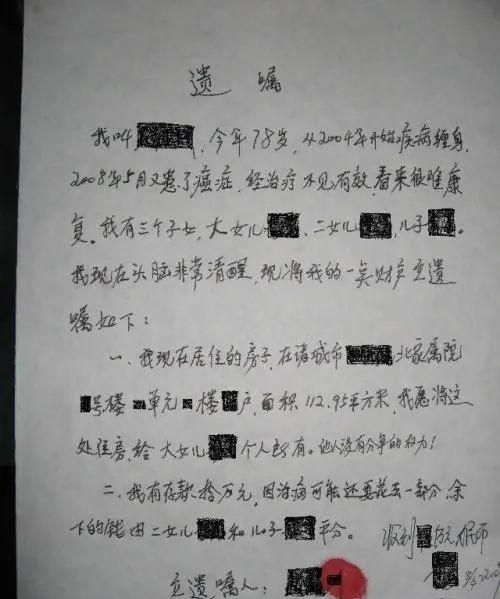 遗 嘱
我叫 ，今年78岁，从2004年开始疾病缠身，
2008年5月又患了癌症，经治疗不见有效，看来很难康
复。我有三个子女，大女儿 、二女儿 、儿子 。
我现在头脑非常清醒，现将我的一矣财产立遗
嘱如下：
一、我现在居住的房子，在诸城市 北家属院
号楼 单元 楼 户，面积112.95平方米，我愿将这
处住房，给大女儿 个人所有。他人没有分争的权力！
二、我有存款拾万元，因治病可能还要花去一部分，余
下的钱由二女儿 和儿子 平分。
收到 万元
立遗嘱人：